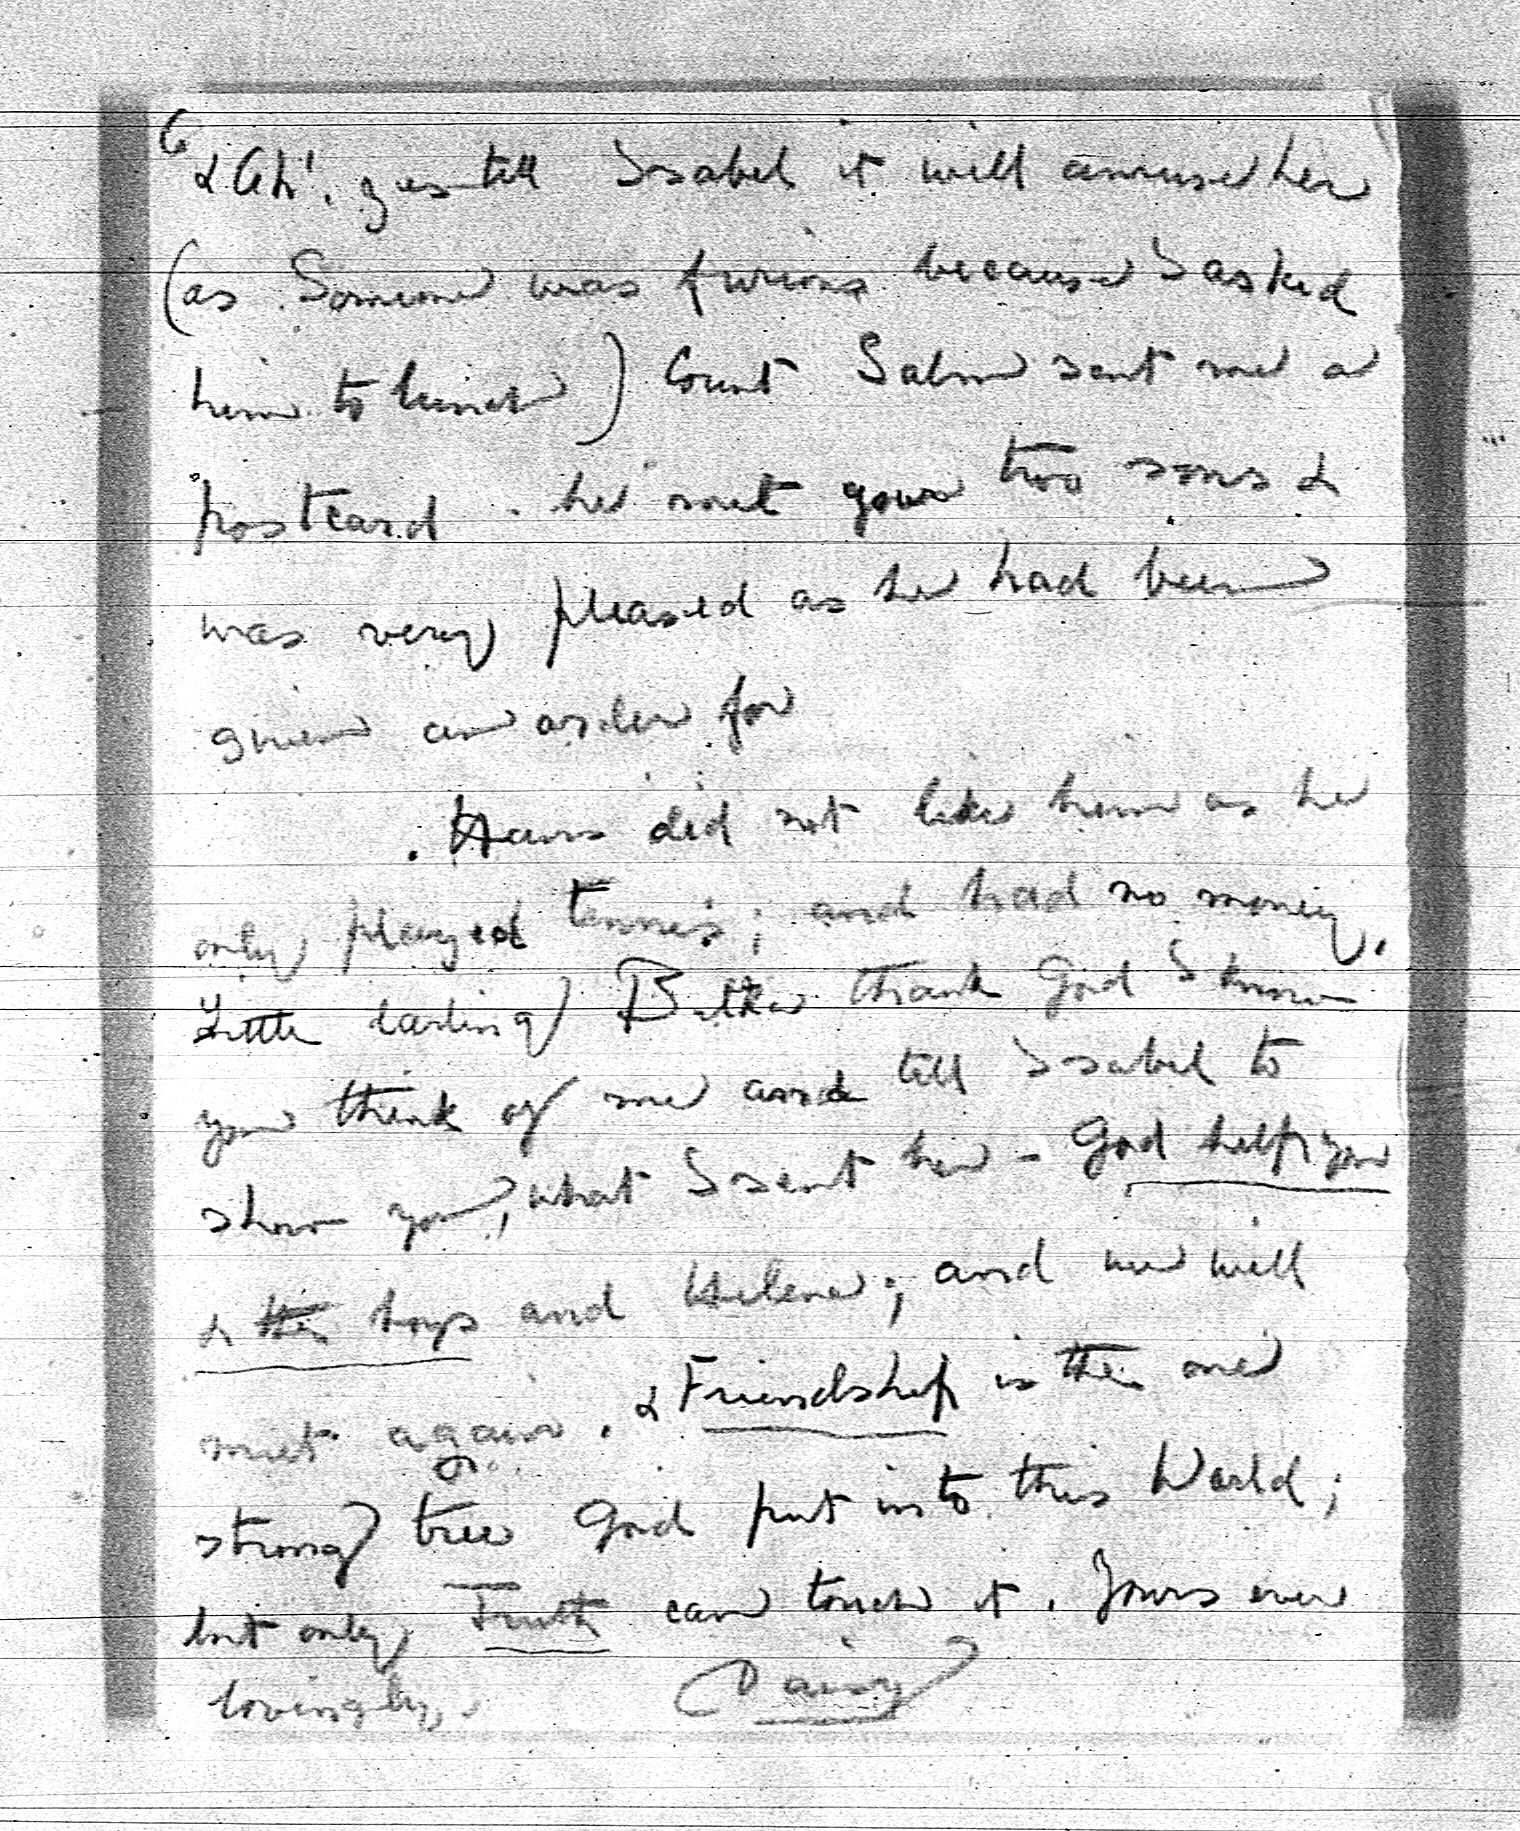 6
& Ah! yes tell Isabel it will amuse her
(as Someone was furious because I asked
him to lunch) Count Salm sent me a
postcard. he met your two sons &
was very pleased as he had been
given an order for
. Hans did not like him as he
only played tennis; and had no money.
Little darling thank God I know
you think of me and tell Isabel to
show you, what I sent her - God help you
& the boys and Helene; and we will
meet again. & Friendship is the one
strong tree God put into this World;
but only Truth can touch it. Yours ever
lovingly, Daisy